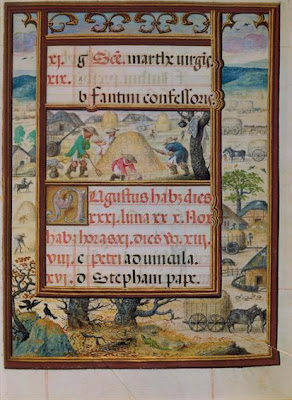 xi. g Sce. marthe virgie
xix.
b fantini confessoris
Augustus habz dies
xxxi. luna xx x. Nox
habz horas xi. dies xiii.
viii. c petri ad vincula.
xvi. d Stephani pape.